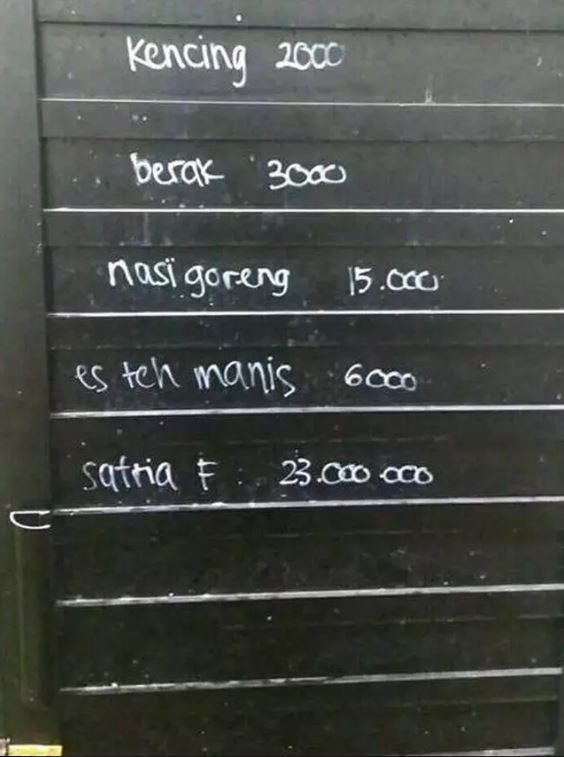 Kencing 2000
berak 3000
nasi goreng 15.000
es teh manis 6000
satria F : 23.000.000